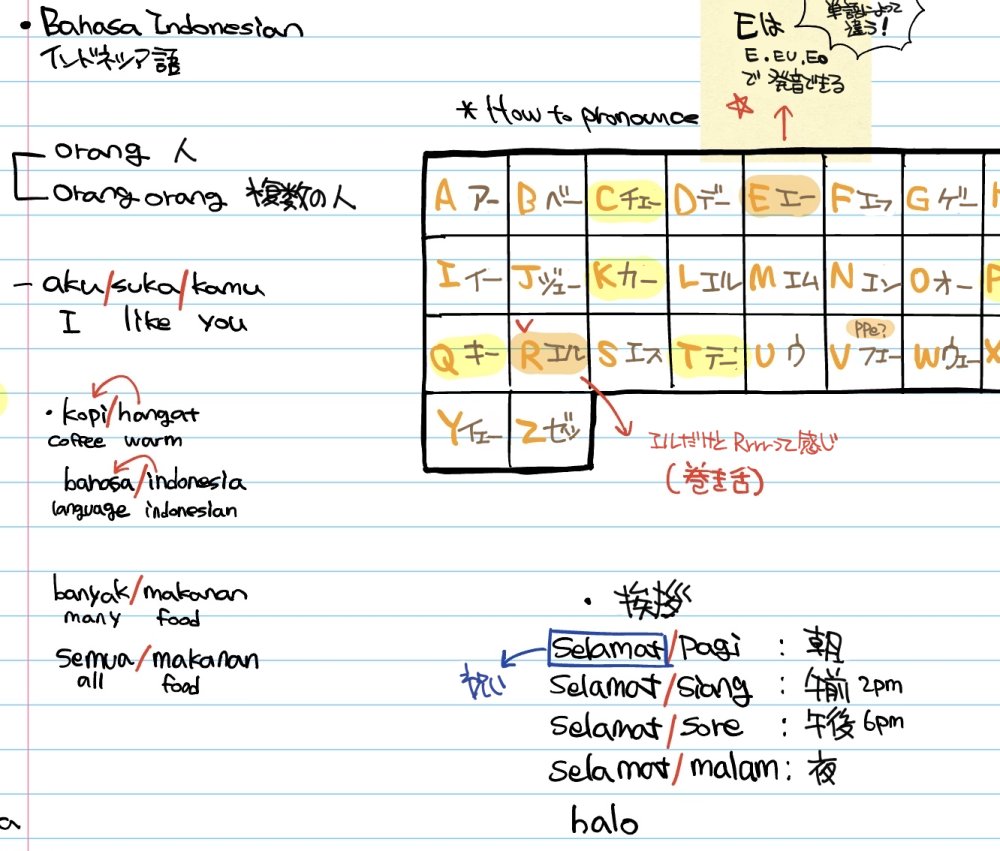 • Bahasa Indonesian
インドネシア語
orang 人
orang orang 複数の人
– aku/suka/kamu
I like you
• kopi/hangat
coffee warm
bahasa/indonesia
language indonesian
banyak/makanan
many food
semua/makanan
all food
a
単語によって
違う!
Eは
E.EU.EO
で発音できる
* How to pronounce
A アー B ベー C チェー D デー E エー F エフ G ゲー
I イー J ジェー K カー L エル M エム N エン O オー P
PPe?
Q キー R エル S エス T テー U ウ V フェー W ウェー X
Y イェー Z ゼッ
エルだけど Rrrrって感じ
(巻き舌)
• 挨拶
Selamat/pagi : 朝
祝い
Selamat/siang : 午前 2pm
Selamat/sore : 午後 6pm
Selamat/malam : 夜
halo